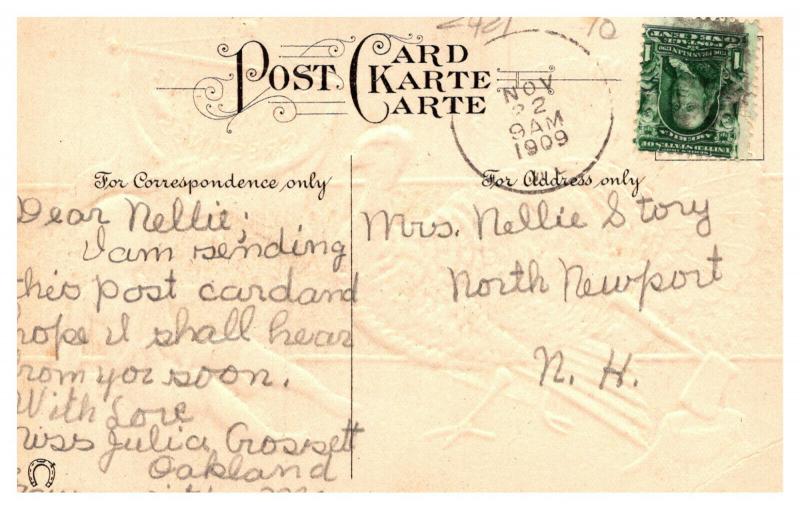 POST CARD
KARTE
CARTE
NOV
22
9 AM
1909
For Correspondence only
For Address only
Dear Nellie;
I am sending
this post card and
hope I shall hear
from yor soon.
With Love
Miss Julia Crossett
Oakland
Mrs. Nellie Story
North Newport
N. H.
1